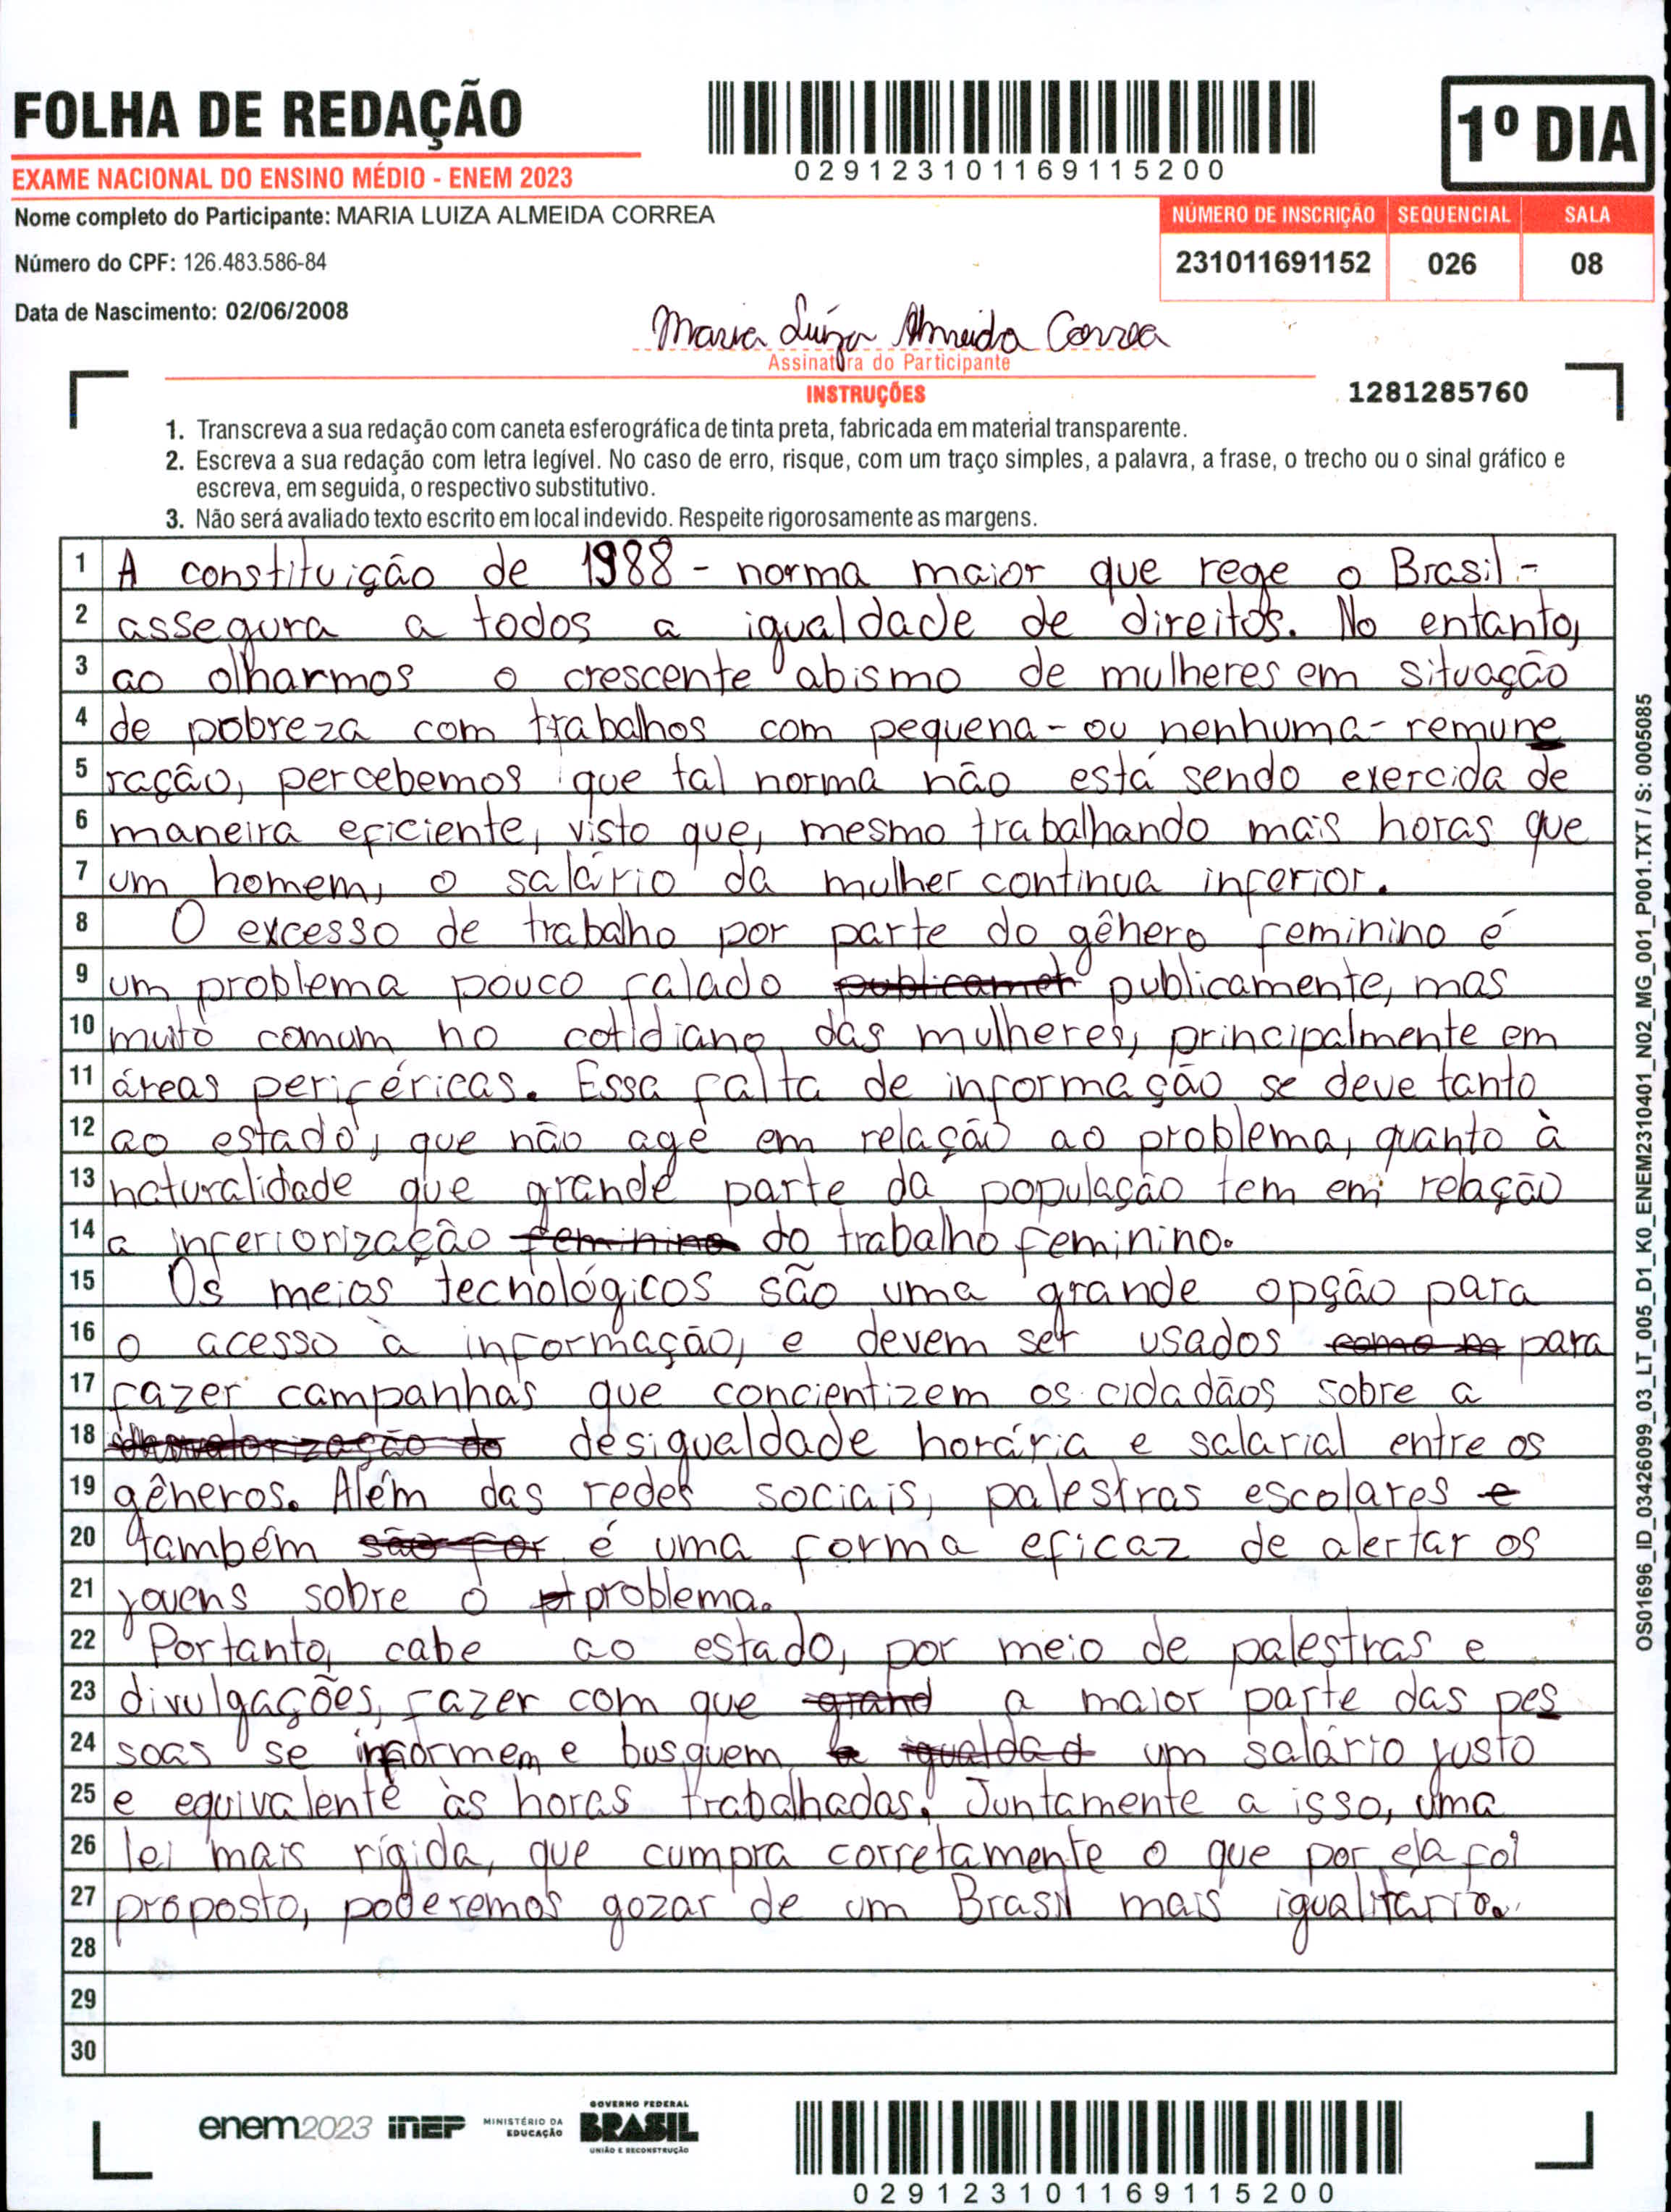 FOLHA DE REDAÇÃO
EXAME NACIONAL DO ENSINO MÉDIO - ENEM 2023
029123101169115200
1º DIA
Nome completo do Participante: MARIA LUIZA ALMEIDA CORREA
Número do CPF: 126.483.586-84
Data de Nascimento: 02/06/2008
NÚMERO DE INSCRIÇÃO SEQUENCIAL SALA
231011691152 026 08
Maria Luiza Almeida Correa
Assinatura do Participante
INSTRUÇÕES
1281285760
1. Transcreva a sua redação com caneta esferográfica de tinta preta, fabricada em material transparente.
2. Escreva a sua redação com letra legível. No caso de erro, risque, com um traço simples, a palavra, a frase, o trecho ou o sinal gráfico e
escreva, em seguida, o respectivo substitutivo.
3. Não será avaliado texto escrito em local indevido. Respeite rigorosamente as margens.
1 A constituição de 1988 - norma maior que rege o Brasil -
2 assegura a todos a igualdade de direitos. No entanto,
3 ao olharmos o crescente abismo de mulheres em situação
4 de pobreza com trabalhos com pequena - ou nenhuma - remune
5 ração, percebemos que tal norma não está sendo exercida de
6 maneira eficiente, visto que, mesmo trabalhando mais horas que
7 um homem, o salário da mulher continua inferior.
8 O excesso de trabalho por parte do gênero feminino é
9 um problema pouco falado publicamet publicamente, mas
10 muito comum no cotidiano das mulheres, principalmente em
11 áreas periféricas. Essa falta de informação se deve tanto
12 ao estado, que não age em relação ao problema, quanto à
13 naturalidade que grande parte da população tem em relação
14 a inferiorização feminina do trabalho feminino.
15 Os meios tecnológicos são uma grande opção para
16 o acesso à informação, e devem ser usados como m para
17 fazer campanhas que concientizem os cidadãos sobre a
18 desvalorização do desigualdade horária e salarial entre os
19 gêneros. Além das redes sociais, palestras escolares e
20 também são for é uma forma eficaz de alertar os
21 jovens sobre o problema.
22 Portanto, cabe ao estado, por meio de palestras e
23 divulgações, fazer com que grand a maior parte das pes
24 soas se informem e busquem a igualdad um salário justo
25 e equivalente às horas trabalhadas. Juntamente a isso, uma
26 lei mais rígida, que cumpra corretamente o que por ela foi
27 proposto, poderemos gozar de um Brasil mais igualitário.
28
29
30
OS01696_ID_03426099_03_LT_005_D1_K0_ENEM2310401_N02_MG_001_P001.TXT / S: 0005085
enem2023 inep MINISTÉRIO DA EDUCAÇÃO GOVERNO FEDERAL BRASIL UNIÃO E RECONSTRUÇÃO
029123101169115200